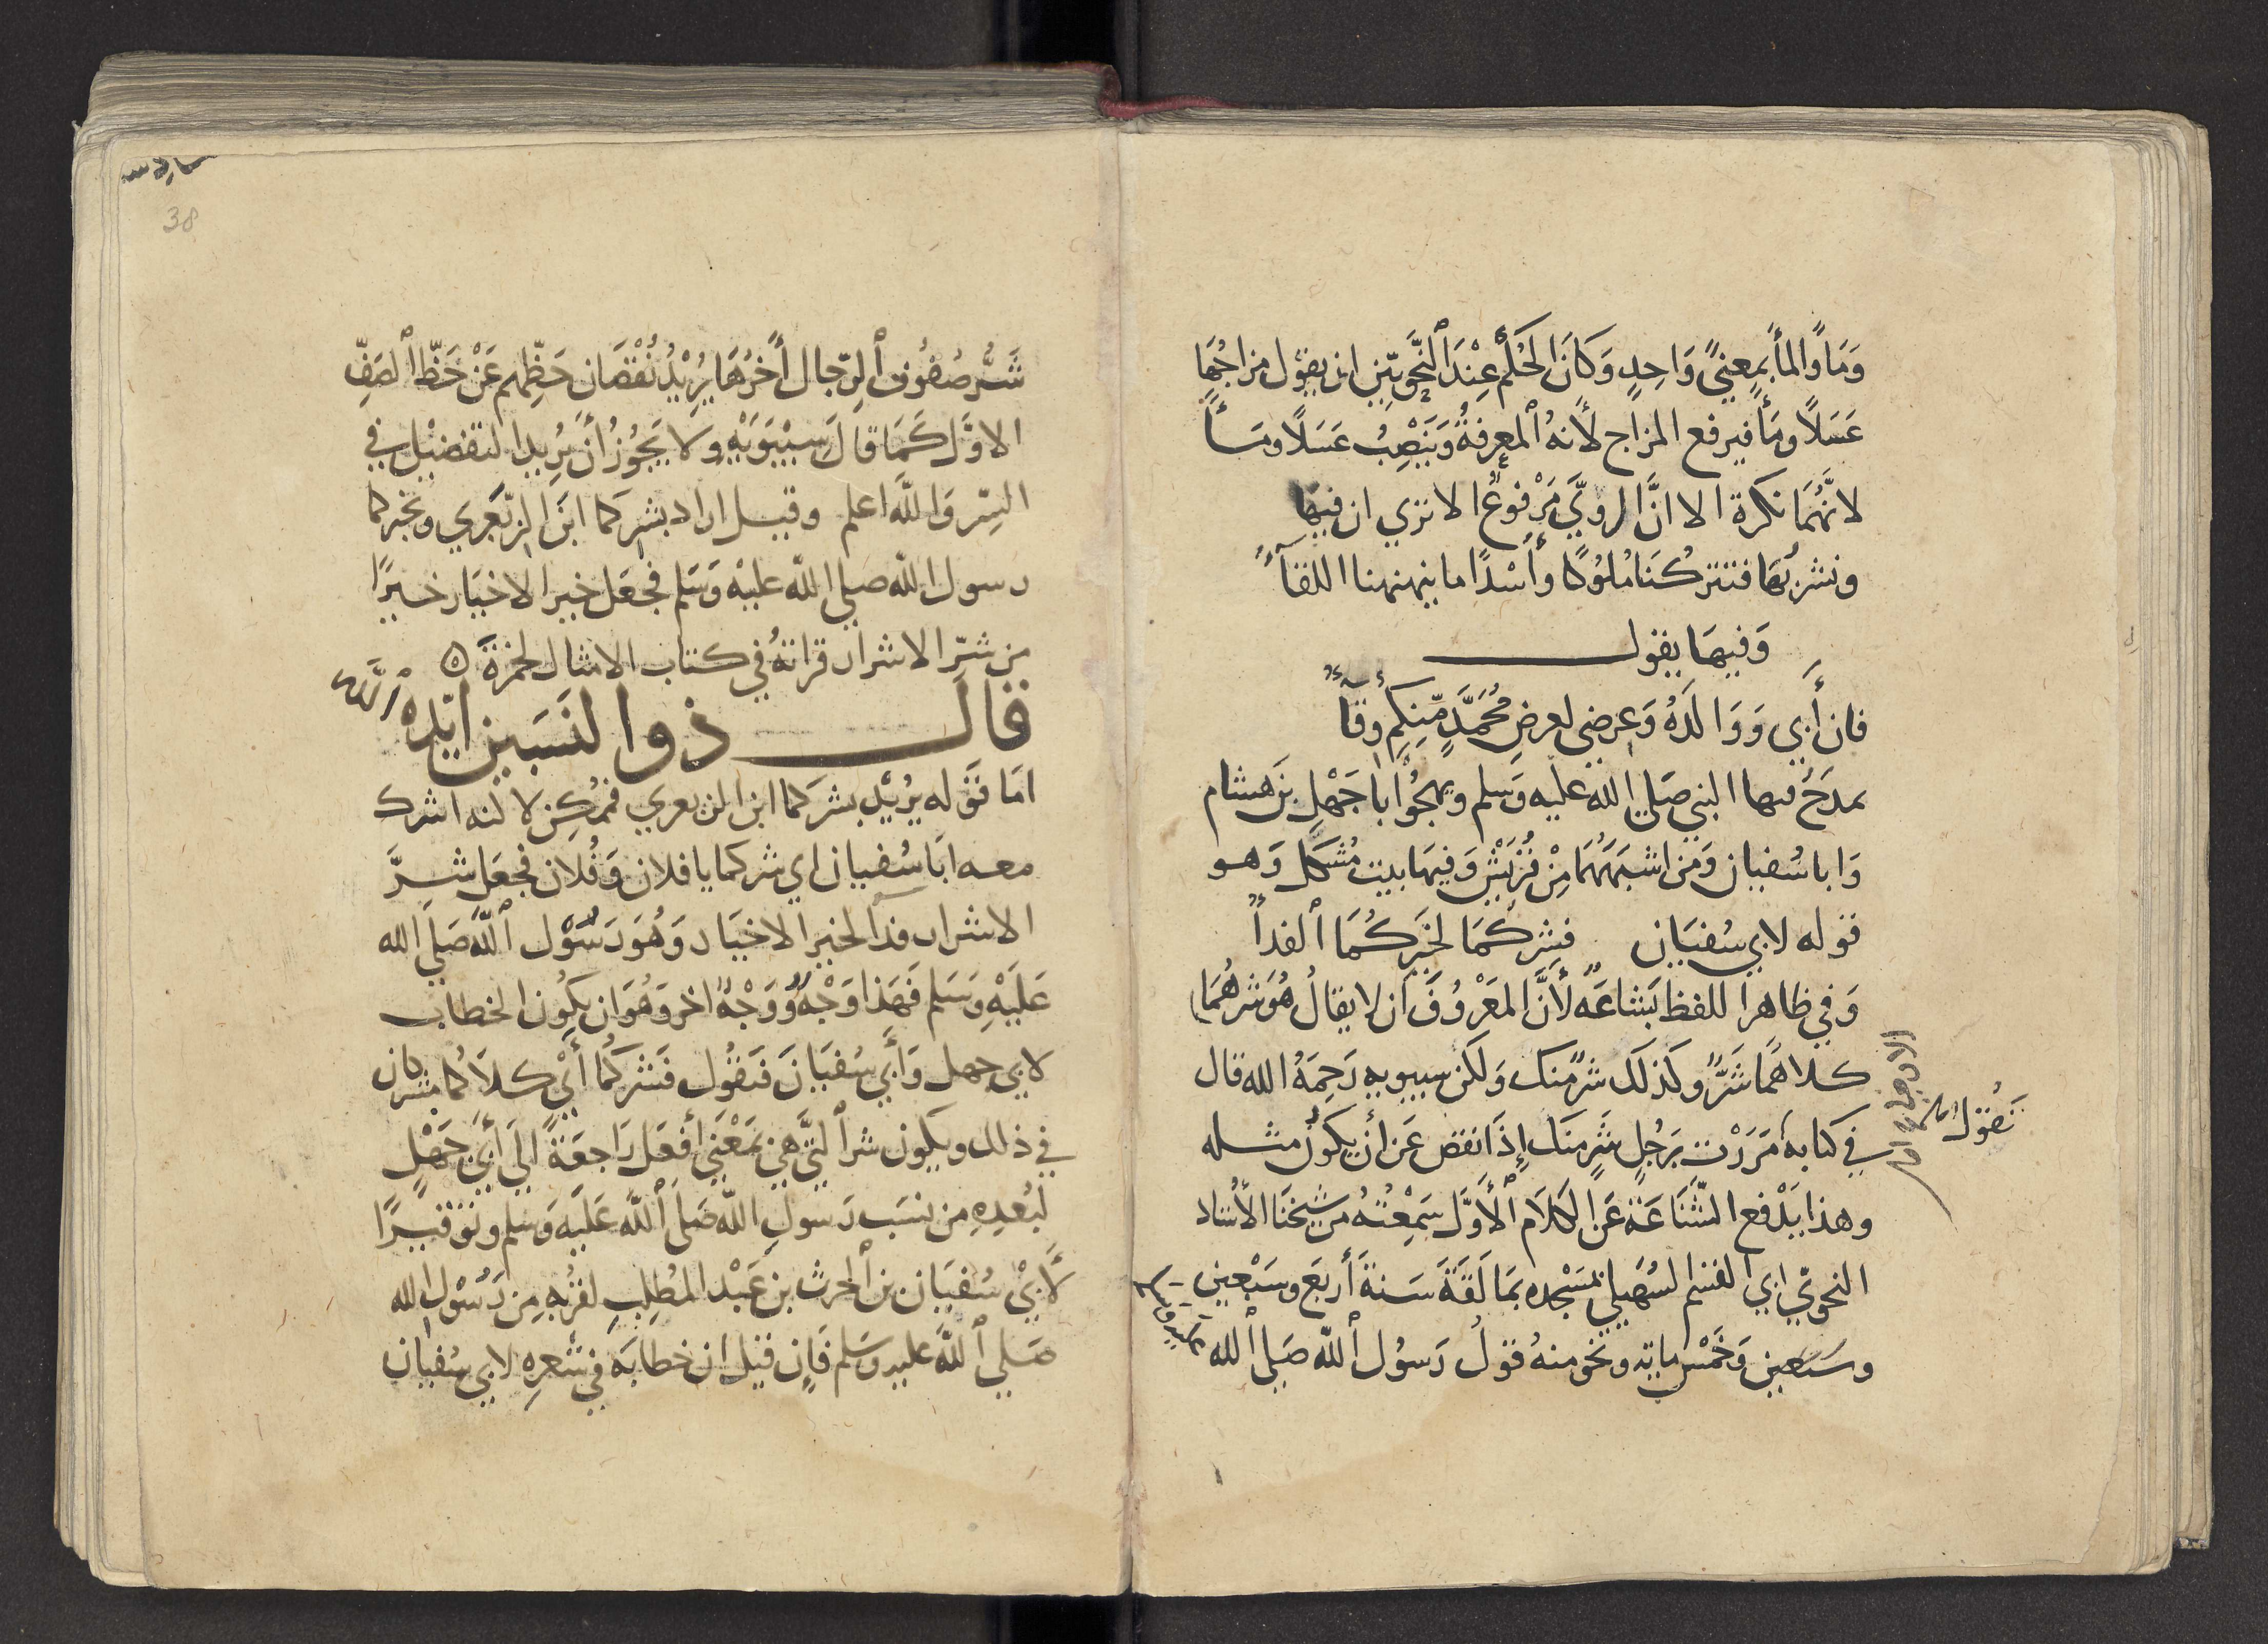 وَمَاوًالمأبمعنيً وَاحِدٍ وَكَانَ الحُكم عِنْدَ النَّحويّين ان يقول مزاجُهَا
عَسَلاً ومَأً فيرفع المزاج لأنهُ المعرِفةُ وَيَنْصِبُ عَسَلاً ومَـأً
لانّهُمَا نكرة الا انَّ الرويَّ مَرْفوعٌ الا تري ان فيها
ونشربُهَا فتتركُنَا مُلوُكًا وأُسْدًا ما ينهنهنا اللقآءُ
وَفيهَا يقول
فان أَبي وَوَالدَهُ وَعِرضي لعرضِ مُحَمَّدٍ مِّنِكم وقآءُ
يمدَحُ فيها النبي صَلي الله عليه وَسَلم ويهجُوْا باجَهْلِ بنَ هشام
وَابا سُفيان وَمن اشبَهَهُمَا مِنْ قُرَيْشٍ وَفيهَا بيت مُشكَل وَهو
قوله لابي سُفيَان فشركُمَا لخيَركُمَا الفدأُ
وَفي ظاهر اللفظ بَشاعَه لأنَّ المعَرْوُفَ ان لا يقالُ هُوَ شرهُمَا
كلاهُمَا شَرٌّ وكذلَك شرٌ منك وَلكن سيبويه رَحِمَهُ الله قال
تَقوُل
في كتابه مَرَرْت برَجُلٍ شَرٍ منَك إِذَا نقص عَن أن يكونَ مثله
وهذا يَدْفع الشّنَاعَةَ عَن الكلاَم الأَوَّل سَمِعْتهُ من شيخنَا الأُستاد
النحوّي ابي القسم السُهَيلي بمَسْجده بمَالَقَةَ سَنةَ أَربَع وسَبْعين
وسَبعين وَخَمْس مايَه ونحو منهُ قولُ رَسوُل اللّه صَلي الله
عليه وسلم
38
شَرُّ صفُوُف الرّجال أَخرُهَا يُرِيْدُ نُقْصَان حَظِّهم عَنْ حَظّ الصَفِّ
الاوَّل كَمَا قالَ سيْبوَيْهِ وَلا يَجُوُز أَنَ يُريدا لتفضيْل في
الشِر وَاللَّه اعلم وقيل اراد بشركما ابنَ الزّبعَري وبخيركما
رسول اللّه صلي اللّه عليْه وَسَلم فجعَل خير الاخيَار خيرًا
مِن شرّ الاشرار قراتهُ في كتاب الامثال لحمزَة ٥
قال ذوالنسَبين ايّده اللَّه
امَا قوَله يُريْد بشركما ابن الزبعري فممُكِن لانه اشرك
معه ابَا سُفيان اي شركما يا فلان وَفُلان فجعَل شـرَّ
الاشرار فدآ لخير الاخيَار وَهُوَ رَسُوْل اللَّه صَلَي الله
عَليَهِ وَسَلم فَهَذا وَجْهٌ وَوَجْهٌ اخر وَهُوَ ان يكوُن الخطاب
لابي جهل وَأَبي سُفيَانَ فتقوُل فَشَركُمَا أَيْ كلاَكُما مشركان
في ذلك ويكون شر التَّي هي بمَعْنَي أَفعَل رَاجعَةً الي أَبي جَهْلٍ
لبُعدِهِ مِن نسَب رَسولِ اللّه صَلَي اللَّه عَليَه وَسَلم وتوَقيـرًا
لأَبيْ سُفيَان بن الحرث بن عَبْد المُطلِبِ لقُربِهِ مِن رَسُوْل الله
صَلي اللَّه عليه وسَلم فَإِن قيل ان خطابَه في شعرِهِ لابي سُفيان